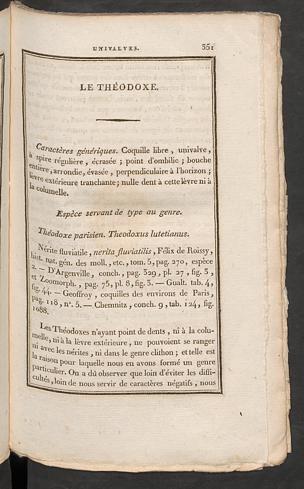 UNIVALVES. 351
LE THÉODOXE.
Caractères génériques. Coquille libre, univalve,
à spire régulière, écrasée ; point d'ombilic ; bouche
entière, arrondie, évasée, perpendiculaire à l'horizon ;
lèvre extérieure tranchante ; nulle dent à cette lèvre ni à
la columelle.
Espèce servant de type au genre.
Théodoxe parisien. Theodoxus lutetianus.
Nérite fluviatile, nerita fluviatilis, Félix de Roissy,
hist. nat. gén. des moll., etc., tom. 5, pag. 270, espèce
2. — D'Argenville, conch., pag. 329, pl. 27, fig. 3,
et Zoomorph., pag. 75, pl. 8, fig. 3. — Gualt. tab. 4,
fig. 44. — Geoffroy, coquilles des environs de Paris,
pag. 118, n°. 5. — Chemnitz, conch. 9, tab. 124, fig.
1088.
Les Théodoxes n'ayant point de dents, ni à la colu-
melle, ni à la lèvre extérieure, ne pouvoient se ranger
ni avec les nérites, ni dans le genre clithon ; et telle est
la raison pour laquelle nous en avons formé un genre
particulier. On a dû observer que loin d'éviter les diffi-
cultés, loin de nous servir de caractères négatifs, nous